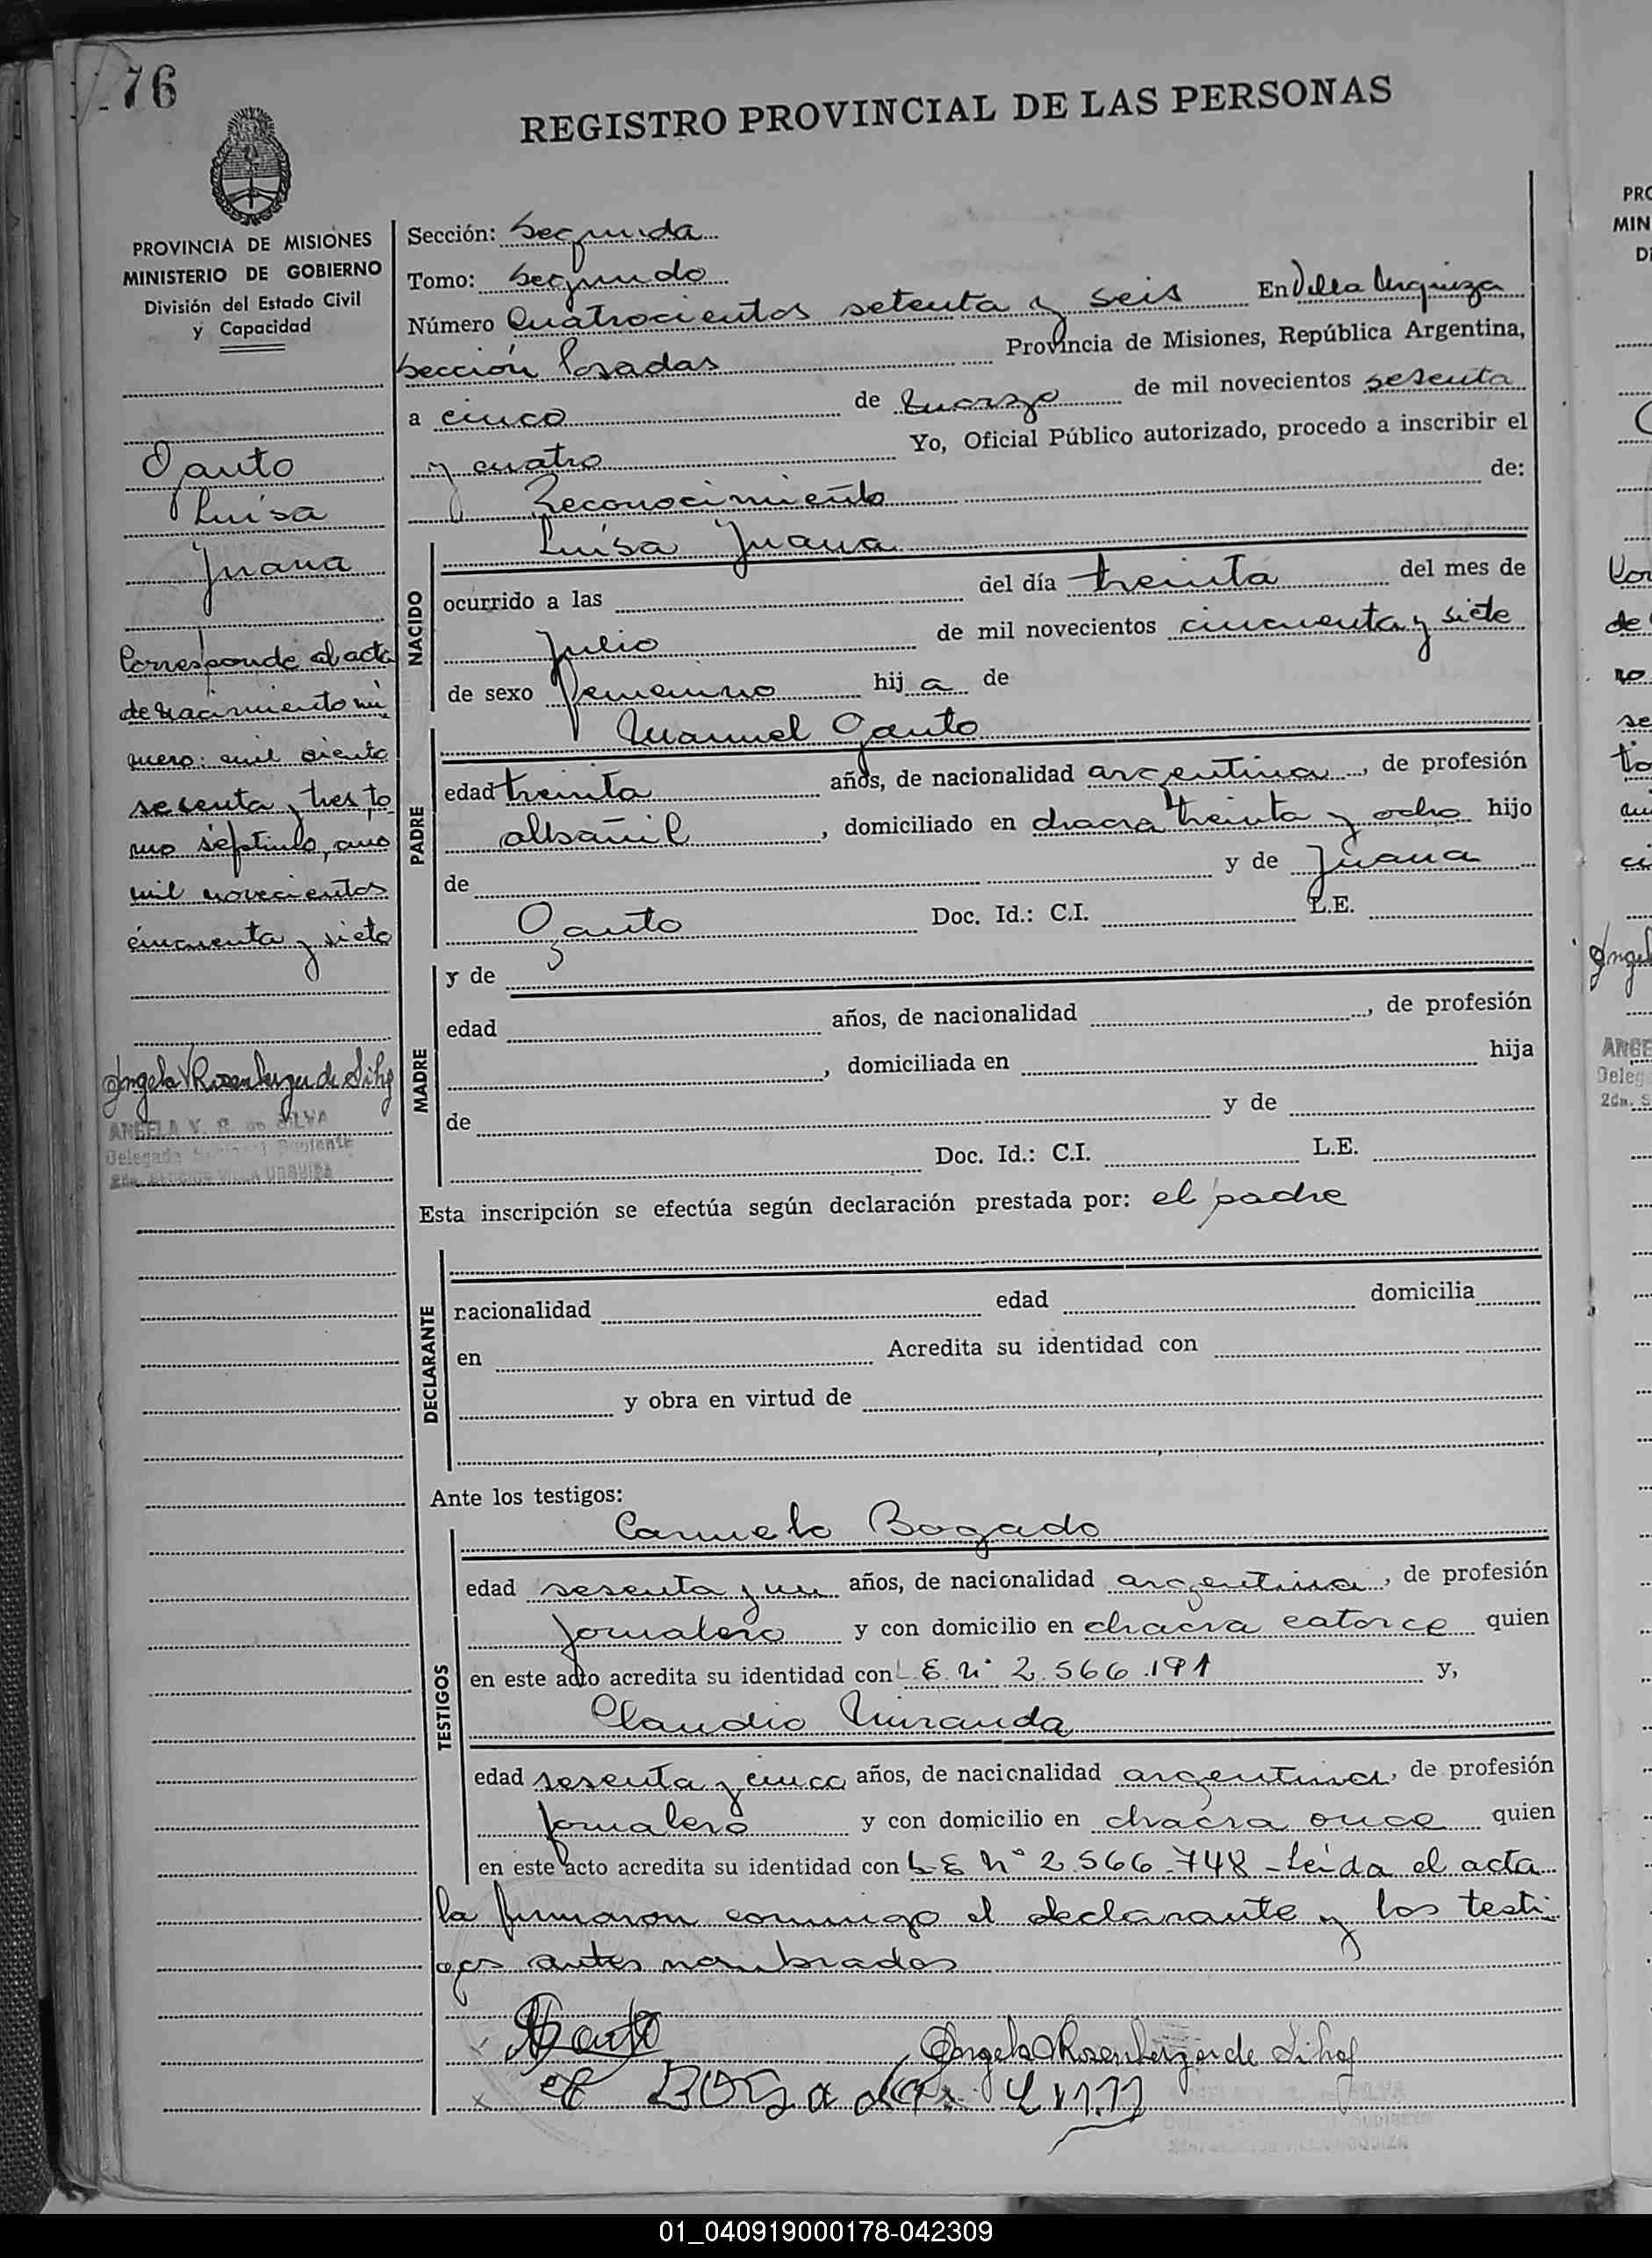 76
REGISTRO PROVINCIAL DE LAS PERSONAS
PROVINCIA DE MISIONES
MINISTERIO DE GOBIERNO
División del Estado Civil
y Capacidad
Gauto
Luisa
Juana
Corresponde al acta
de nacimiento nú
mero: mil ciento
sesenta y tres to
mo séptimo, año
mil novecientos
cincuenta y siete
ANGELA V. R. de SILVA
Delegada Suplente
2da. SECCION VILLA URQUIZA
Sección: Segunda
Tomo: Segundo
Número Cuatrocientos setenta y seis En Villa Urquiza
Sección Posadas Provincia de Misiones, República Argentina,
a cinco de marzo de mil novecientos sesenta
y cuatro Yo, Oficial Público autorizado, procedo a inscribir el
Reconocimiento de:
NACIDO
Luisa Juana
ocurrido a las del día treinta del mes de
Julio de mil novecientos cincuenta y siete
de sexo femenino hij a de
PADRE
Manuel Gauto
edad treinta años, de nacionalidad argentina, de profesión
albañil, domiciliado en chacra treinta y ocho hijo
de y de Juana
Gauto Doc. Id.: C.I. L.E.
MADRE
y de
edad años, de nacionalidad , de profesión
, domiciliada en hija
de y de
Doc. Id.: C.I. L.E.
Esta inscripción se efectúa según declaración prestada por: el padre
DECLARANTE
nacionalidad edad domicilia
en Acredita su identidad con
y obra en virtud de
Ante los testigos:
TESTIGOS
Carmelo Bogado
edad sesenta y un años, de nacionalidad argentina, de profesión
jornalero y con domicilio en chacra catorce quien
en este acto acredita su identidad con L.E. n° 2.566.191 y,
Claudio Miranda
edad sesenta y cinco años, de nacionalidad argentina, de profesión
jornalero y con domicilio en chacra once quien
en este acto acredita su identidad con L-E n° 2.566.748 - Leída el acta
la firmaron conmigo el declarante y los testi
gos antes nombrados
Gauto
Bogado
01_040919000178-042309